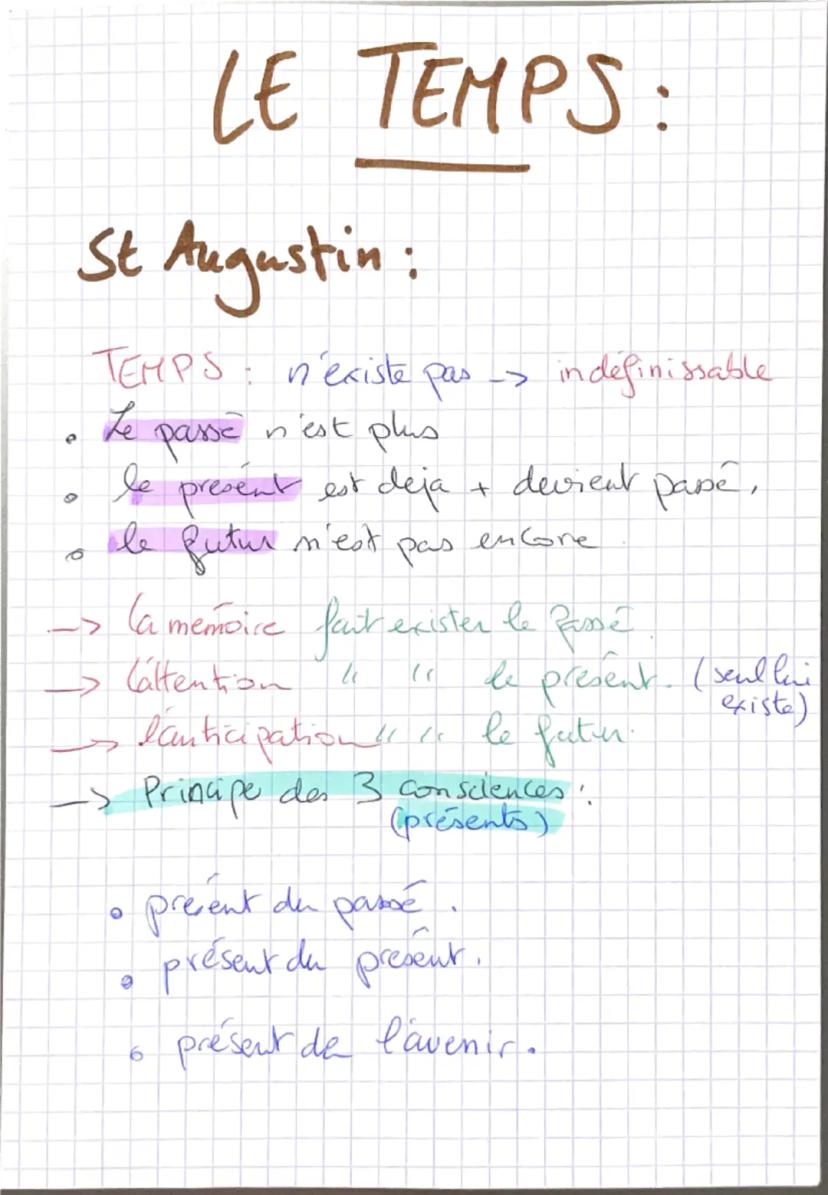 LE TEMPS :
St Augustin :
TEMPS : n'existe pas -> indéfinissable
• Le passé n'est plus
• le présent est deja + devient passé,
• le futur n'est pas encore
-> la mémoire fait exister le passé.
-> l'attention " " le présent. (seul lui existe)
-> l'anticipation " " le futur.
-> Principe des 3 consciences :
(présents)
• présent du passé.
• présent du présent.
• présent de l'avenir.